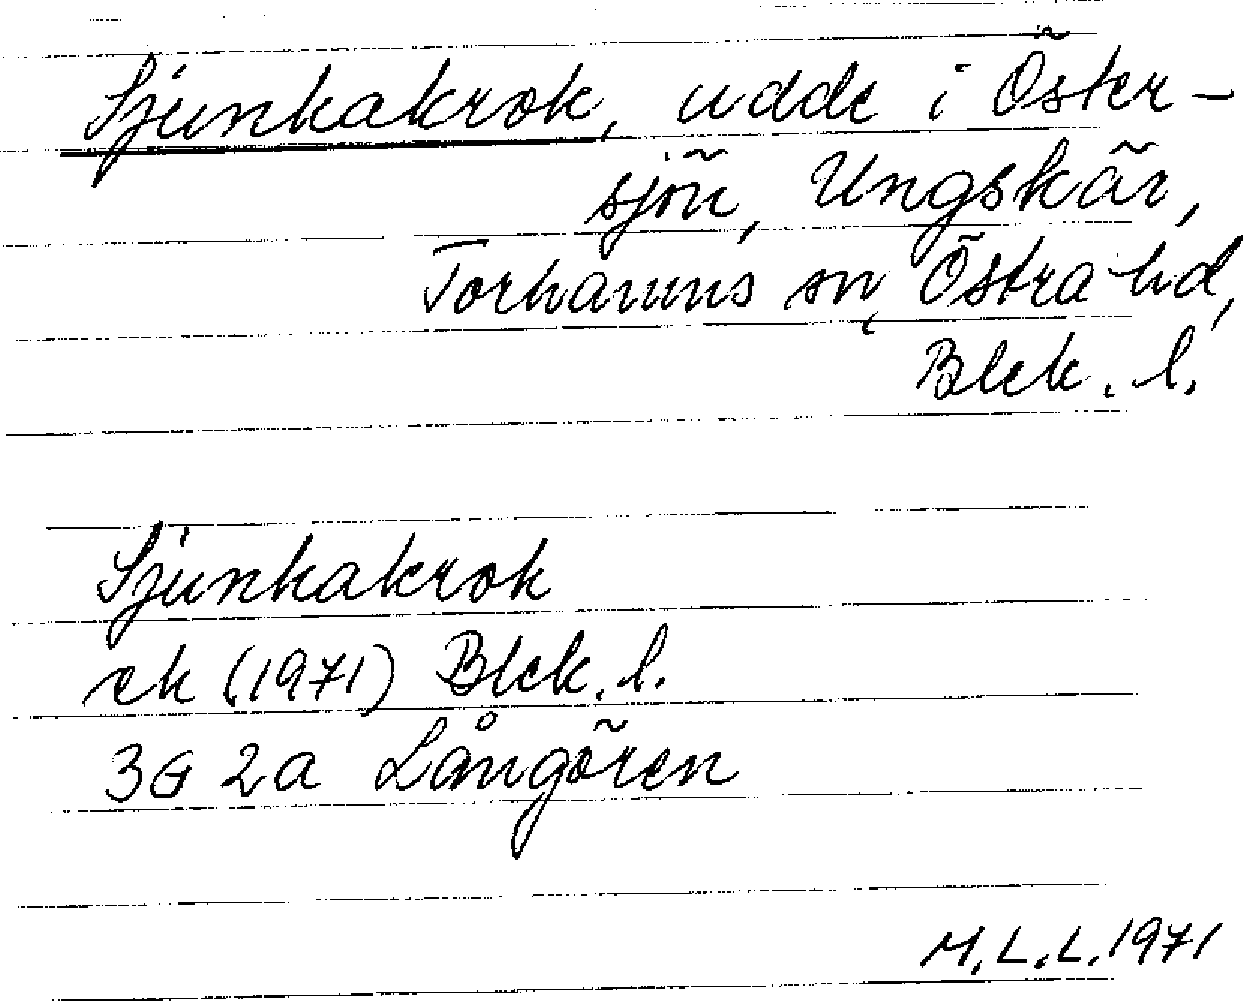 Sjunkakrok, udde i Öster-
sjön, Ungskär,
Torhamns sn, Östra hd,
Blek. l.
Sjunkakrok
ek (1971) Blek. l.
3G 2a Långören
M.L.L. 1971